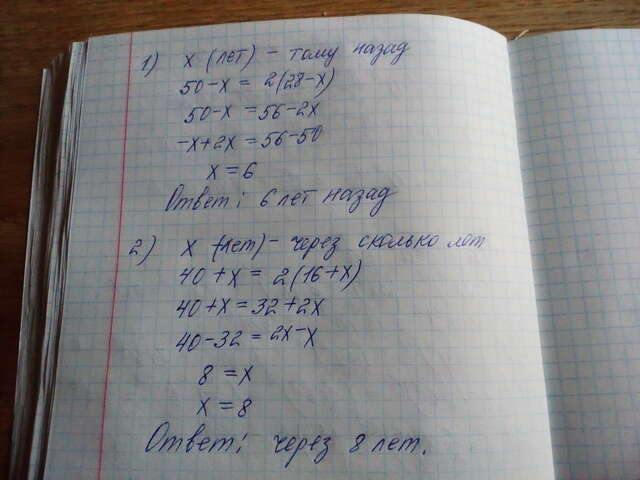 1) x (лет) - тому назад
50-x = 2(28-x)
50-x = 56-2x
-x+2x = 56-50
x = 6
Ответ: 6 лет назад
2) x (лет) - через сколько лет
40+x = 2(16+x)
40+x = 32+2x
40-32 = 2x-x
8 = x
x = 8
Ответ: через 8 лет.